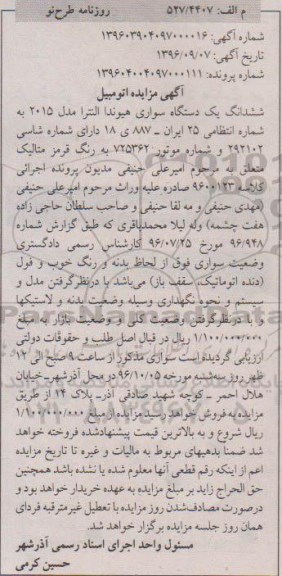 م الف: ۵۲۷/۴۴۰۷ روزنامه طرح‌نو
شماره آگهی: ۱۳۹۶۰۳۹۰۴۰۹۷۰۰۰۰۱۶
تاریخ آگهی: ۱۳۹۶/۰۹/۰۷
شماره پرونده: ۱۳۹۶۰۴۰۰۴۰۹۷۰۰۰۱۱۱
آگهی مزایده اتومبیل
ششدانگ یک دستگاه سواری هیوندا النترا مدل ۲۰۱۵ به
شماره انتظامی ۲۵ ایران ــ ۸۸۷ ی ۱۸ دارای شماره شاسی
۲۹۲۱۰۲ و شماره موتور ۷۲۵۳۶۲ به رنگ قرمز متالیک
متعلق به مرحوم امیرعلی حنیفی مدیون پرونده اجرائی
کلاسه ۹۶۰۰۱۲۳ صادره علیه وراث مرحوم امیرعلی حنیفی
(مهدی حنیفی و مه لقا حنیفی و صاحب سلطان حاجی زاده
هفت چشمه) وله لیلا محمدباقری که طبق گزارش شماره
۹۶/۹۴۸ مورخ ۹۶/۰۷/۲۵ کارشناس رسمی دادگستری
وضعیت سواری فوق از لحاظ بدنه و رنگ خوب و فول
(دنده اتوماتیک، سقف باز) می‌باشد با درنظرگرفتن مدل و
سیستم و نحوه نگهداری وسیله وضعیت بدنه و لاستیکها
و با درنظرگرفتن وضعیت کلی و وضعیت بازار به مبلغ
۱/۱۰۰/۰۰۰/۰۰۰ ریال در قبال اصل طلب و حقوقات دولتی
ارزیابی گردیده است سواری مذکور از ساعت ۹ صبح الی ۱۲
ظهر روز سه‌شنبه مورخه ۹۶/۱۰/۰۵ در محل آذرشهر ـ خیابان
هلال احمر ـ کوچه شهید صادقی آذر ـ پلاک ۱۴ از طریق
مزایده به فروش خواهد رسید مزایده از مبلغ ۱/۱۰۰/۰۰۰/۰۰۰
ریال شروع و به بالاترین قیمت پیشنهادشده فروخته خواهد
شد ضمنا بدهیهای مربوط به مالیات و غیره تا تاریخ مزایده
اعم از اینکه رقم قطعی آنها معلوم شده یا نشده باشد همچنین
حق الحراج زاید بر مبلغ مزایده به عهده خریدار خواهد بود و
درصورت مصادف‌شدن روز مزایده با تعطیل غیرمترقبه فردای
همان روز جلسه مزایده برگزار خواهد شد.
مسئول واحد اجرای اسناد رسمی آذرشهر
حسین کرمی